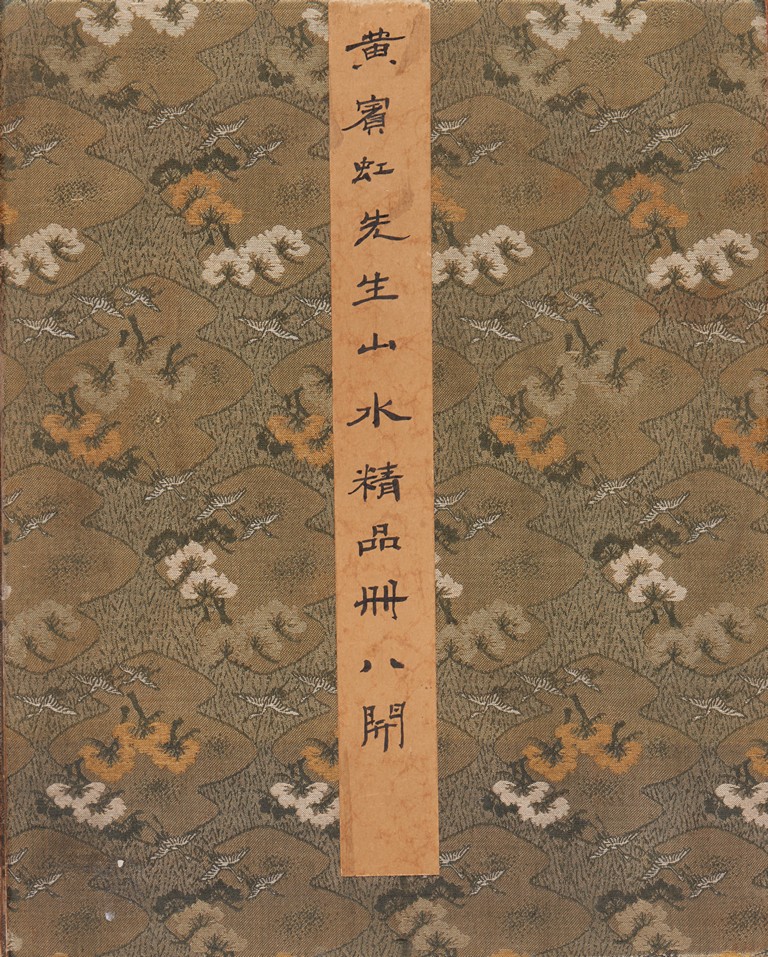 黄賓虹先生山水精品冊八開